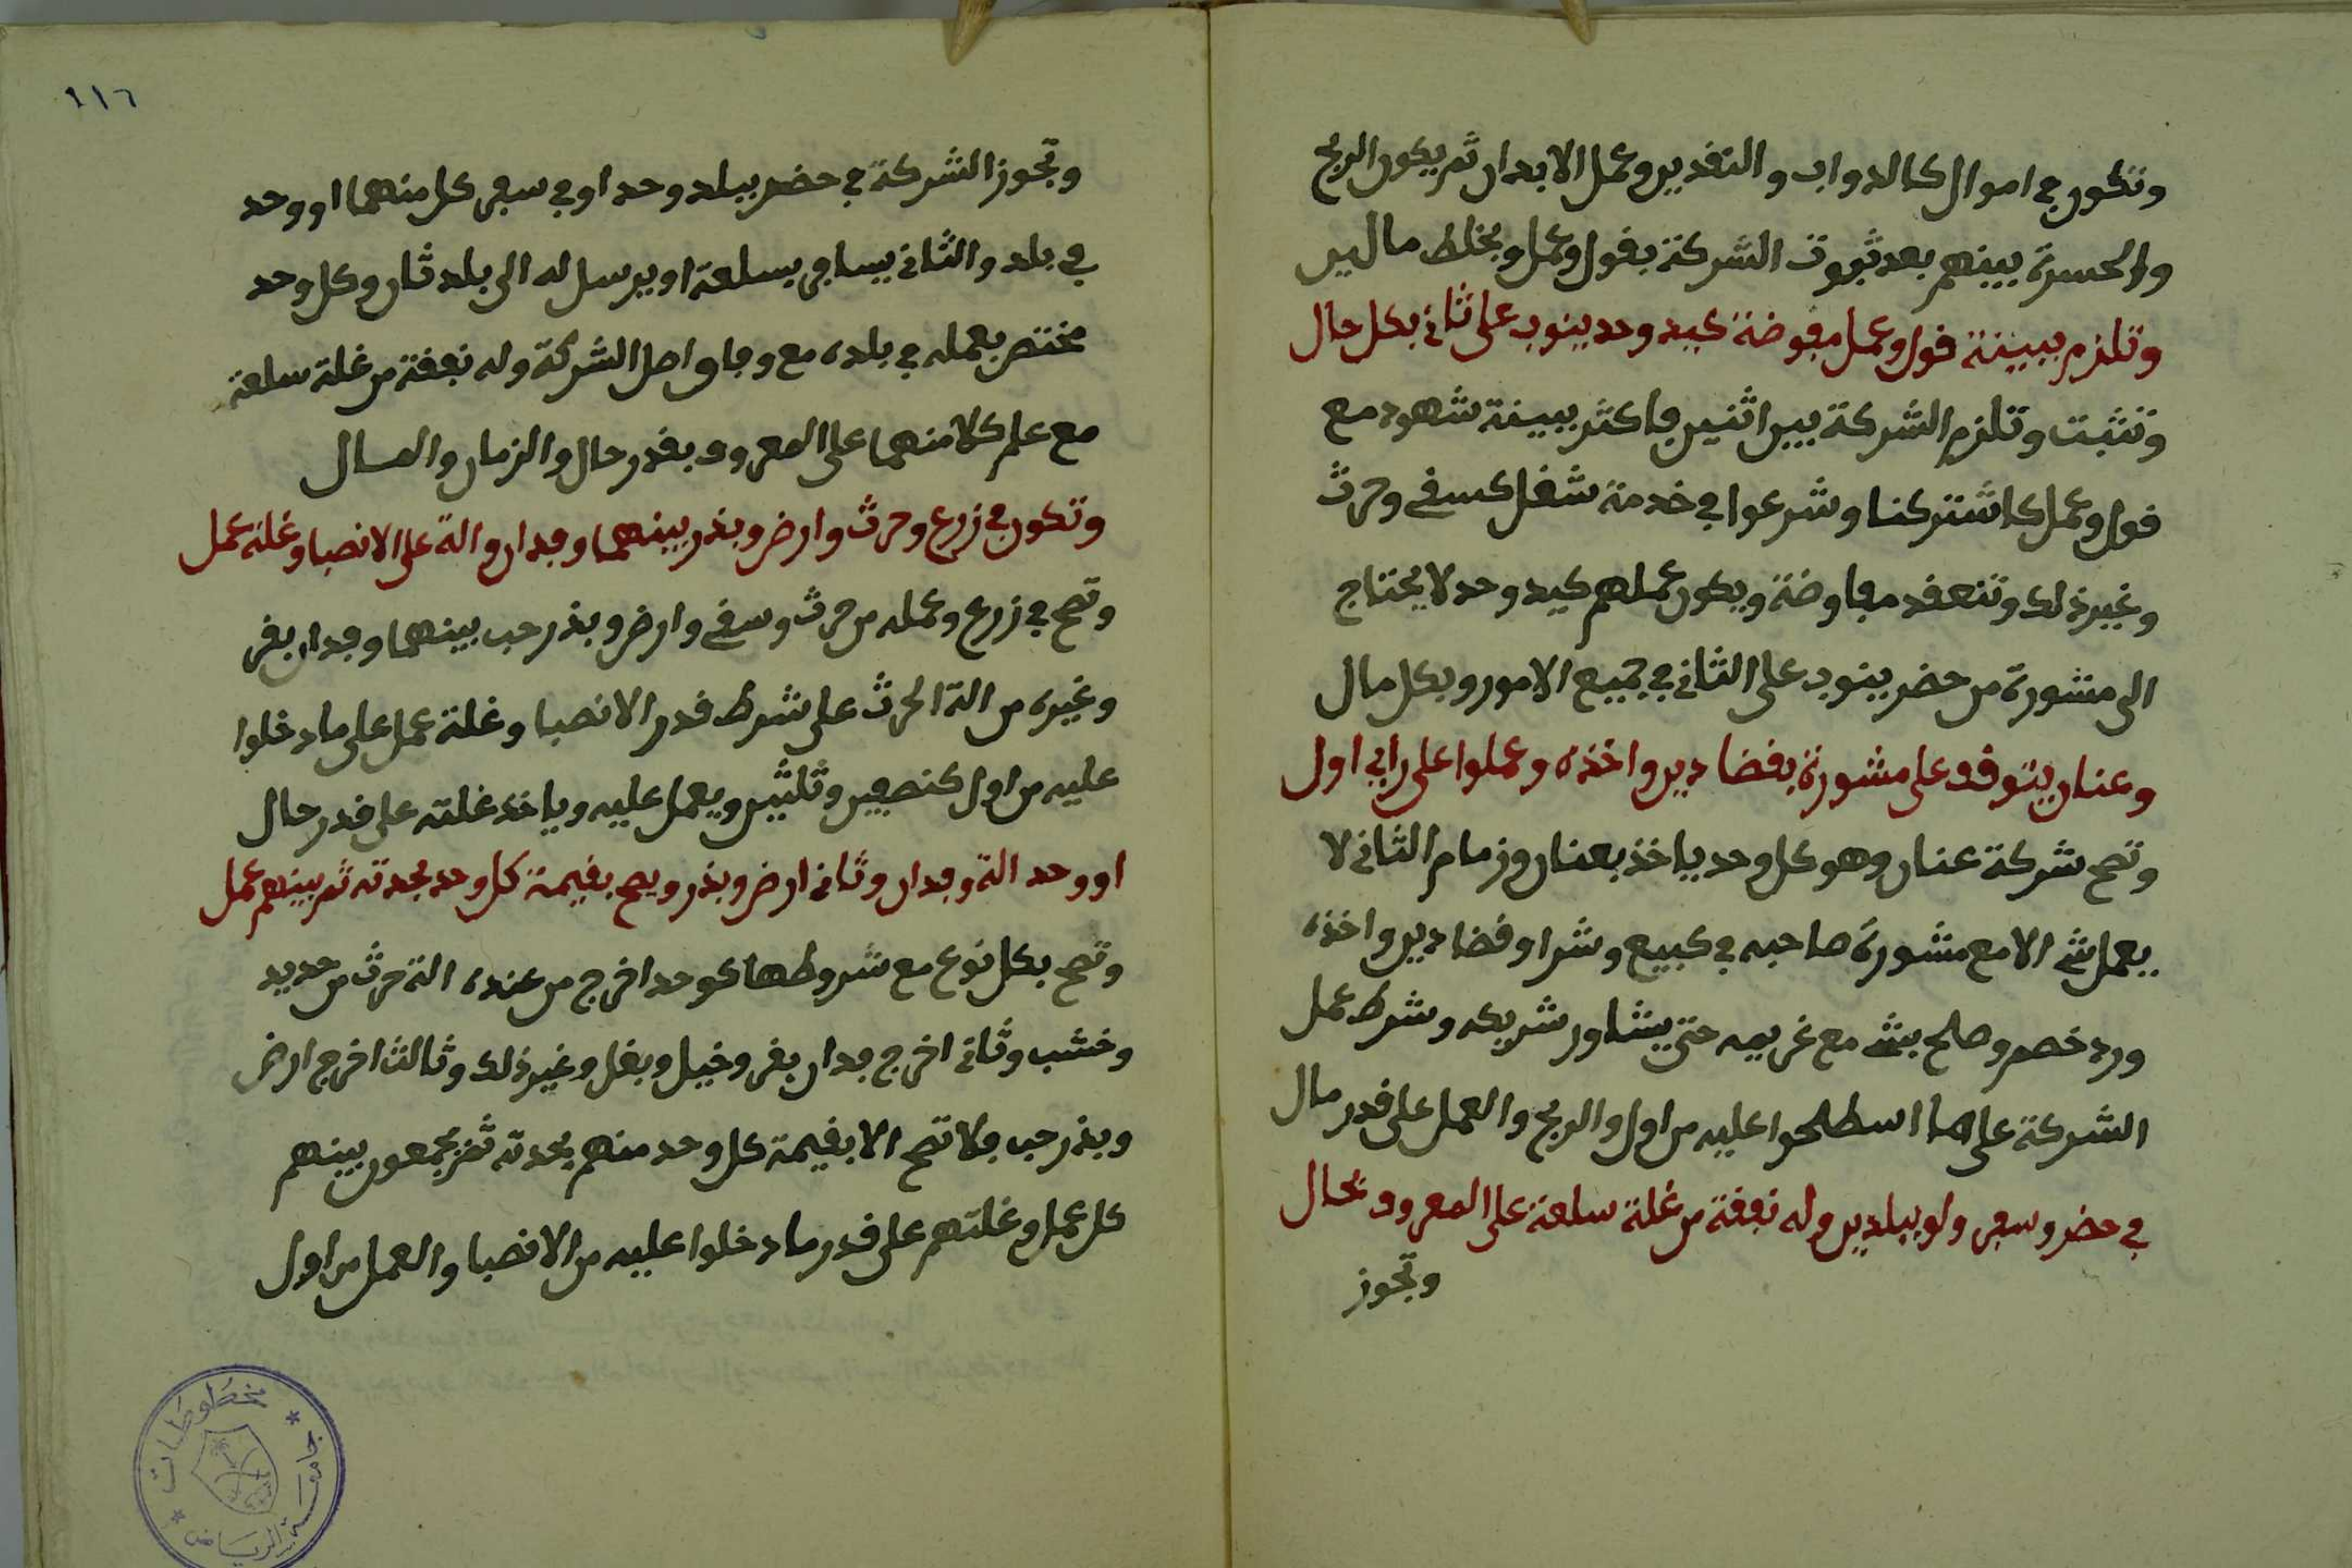 وتكون في اموال كالدواب والنقدين وعمل الابدان ثم يكون الربح
والخسرة بينهم بعد ثبوت الشركة بقول وعمل وبخلط مالين
وتلزم ببينة قول وعمل مفوضة كيد وحد ينوب على ثاني بكل حال
وتثبت وتلزم الشركة بين اثنين فاكثر ببينة شهود مع
قول وعمل كاشتركنا وشرعوا في خدمة شغل كسقي وحرث
وغير ذلك وتنعقد مفاوضة ويكون عملهم كيد وحد لا يحتاج
الى مشورة من حضر ينوب على الثاني في جميع الامور وبكل مال
وعنان يتوقف على مشورة بقضا دين واخذه وعملوا على راي اول
وتصح شركة عنان وهو كل وحد ياخذ بعنان وزمام الثاني لا
يعمل شي الا مع مشورة صاحبه في كبيع وشرا وقضا دين واخذه
ورد خصم وصلح بشي مع غريمه حتى يشاور شريكه وشرط عمل
الشركة على ما اسطلحوا عليه من اول والربح والعمل على قدر مال
في حضر وسفر ولو ببلدين وله نفقة من غلة سلعة على المعروف بحال
وتجوز
١١٦
وتجوز الشركة في حضر ببلد وحد او في سفر كل منهما او وحد
في بلد والثاني يسافر بسلعة او يرسل له الى بلد ثان وكل وحد
مختص بعمله في بلده مع وفاق اصل الشركة وله نفقة من غلة سلعة
مع علم كلا منهما على المعروف بقدر حال والزمان والمسال
وتكون في زرع وحرث وارض وبذر بينهما وفدان والة على الانصبا وغلة عمل
وتصح في زرع وعمله من حرث وسقي وارض وبذر حب بينهما وفدان بقر
وغيره من الة الحرث على شرط قدر الانصبا وغلة عمل على ما دخلوا
عليه من اول كنصفين وثلثين ويعمل عليه وياخذ غلته على قدر حال
او وحد الة وفدان وثاني ارض وبذر ويصح بقيمة كل وحد بحدته ثم بينهم عمل
وتصح بكل نوع مع شروطها كوحد اخرج من عنده الة حرث من حديد
وخشب وثاني اخرج فدان بقر وخيل وبغل وغير ذلك وثالث اخرج ارض
وبذر حب فلا تصح الا بقيمة كل وحد منهم بحدته ثم يجمعون بينهم
كل عمل وغلتهم على قدر ما دخلوا عليه من الانصبا والعمل من اول
مخطوطات
جامعة الرياض